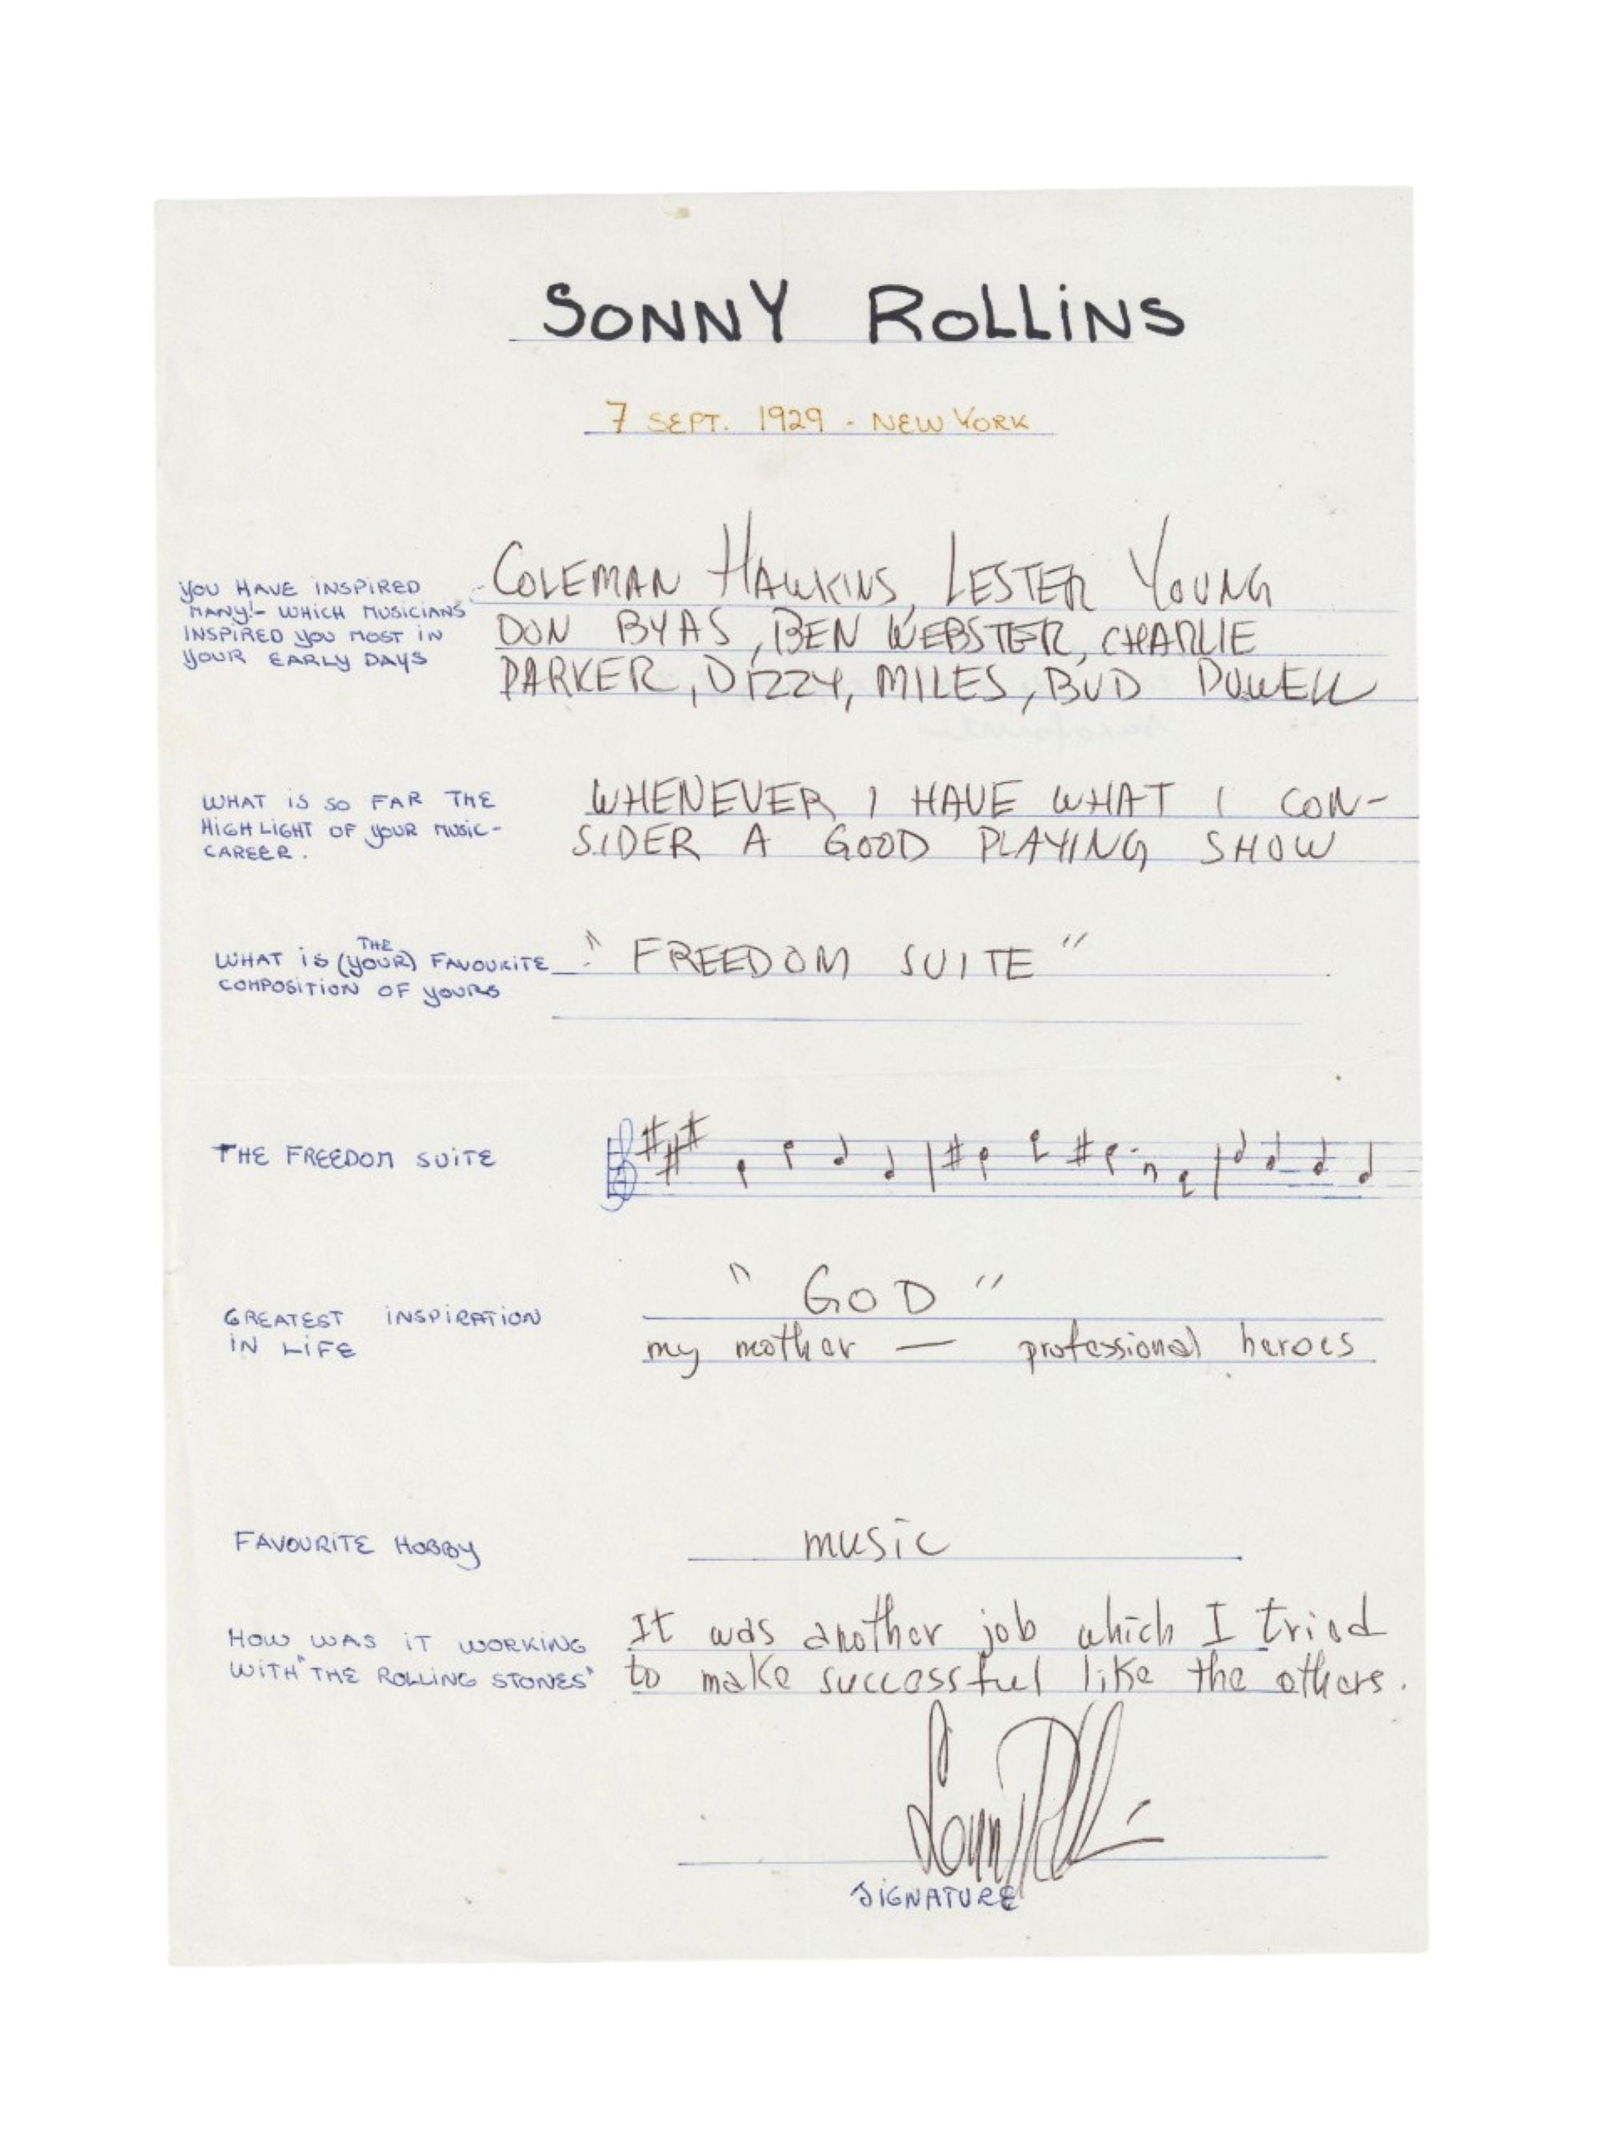 SONNY ROLLINS
7 SEPT. 1929 - NEW YORK
YOU HAVE INSPIRED
MANY!- WHICH MUSICIANS
INSPIRED YOU MOST IN
YOUR EARLY DAYS
COLEMAN HAWKINS, LESTER YOUNG
DON BYAS, BEN WEBSTER, CHARLIE
PARKER, DIZZY, MILES, BUD POWELL
WHAT IS SO FAR THE
HIGHLIGHT OF YOUR MUSIC-
CAREER.
WHENEVER I HAVE WHAT I CON-
SIDER A GOOD PLAYING SHOW
WHAT IS (YOUR) THE FAVOURITE
COMPOSITION OF YOURS
"FREEDOM SUITE"
THE FREEDOM SUITE
GREATEST INSPIRATION
IN LIFE
"GOD"
my mother — professional heroes
FAVOURITE HOBBY
music
HOW WAS IT WORKING
WITH "THE ROLLING STONES"
It was another job which I tried
to make successful like the others.
Sonny Rollins
SIGNATURE